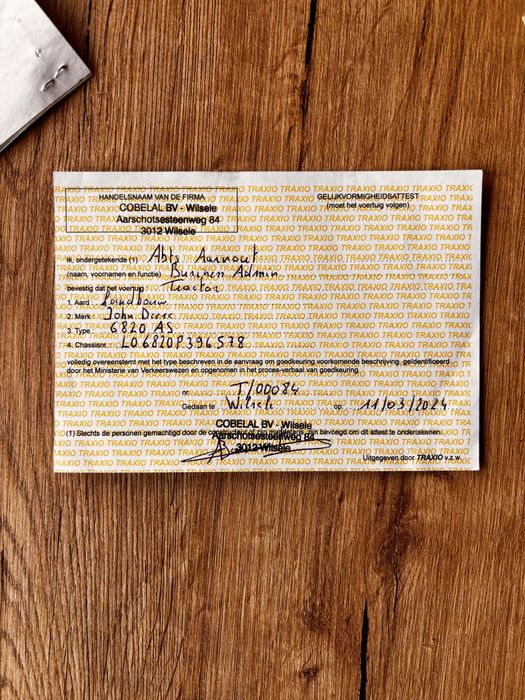 HANDELSNAAM VAN DE FIRMA
COBELAL BV - Wilsele
Aarschotsesteenweg 84
3012 Wilsele
GELIJKVORMIGHEIDSATTEST
(moet het voertuig volgen)
Ik, ondergetekende (1) Abts Aarnout
(naam, voornamen en functie) Admin
bevestig dat het voertuig Tractor
1. Aard : Landbouw
2. Merk : John Deere
3. Type 6820 AS
4. Chassisnr. L06820P396578
volledig overeenstemt met het type beschreven in de aanvraag om goedkeuring voorkomende beschrijving, geïdentificeerd
door het Ministerie van Verkeerswezen en opgenomen in het proces-verbaal van goedkeuring
nr. T/00084
Gedaan te Wilsele op 11/03/2024
COBELAL BV - Wilsele
Aarschotsesteenweg 84
3012 Wilsele
(1) Slechts de personen gemachtigd door de constructeur of zijn mandataris, zijn bevoegd om dit attest te ondertekenen.
Uitgegeven door TRAXIO v.z.w.